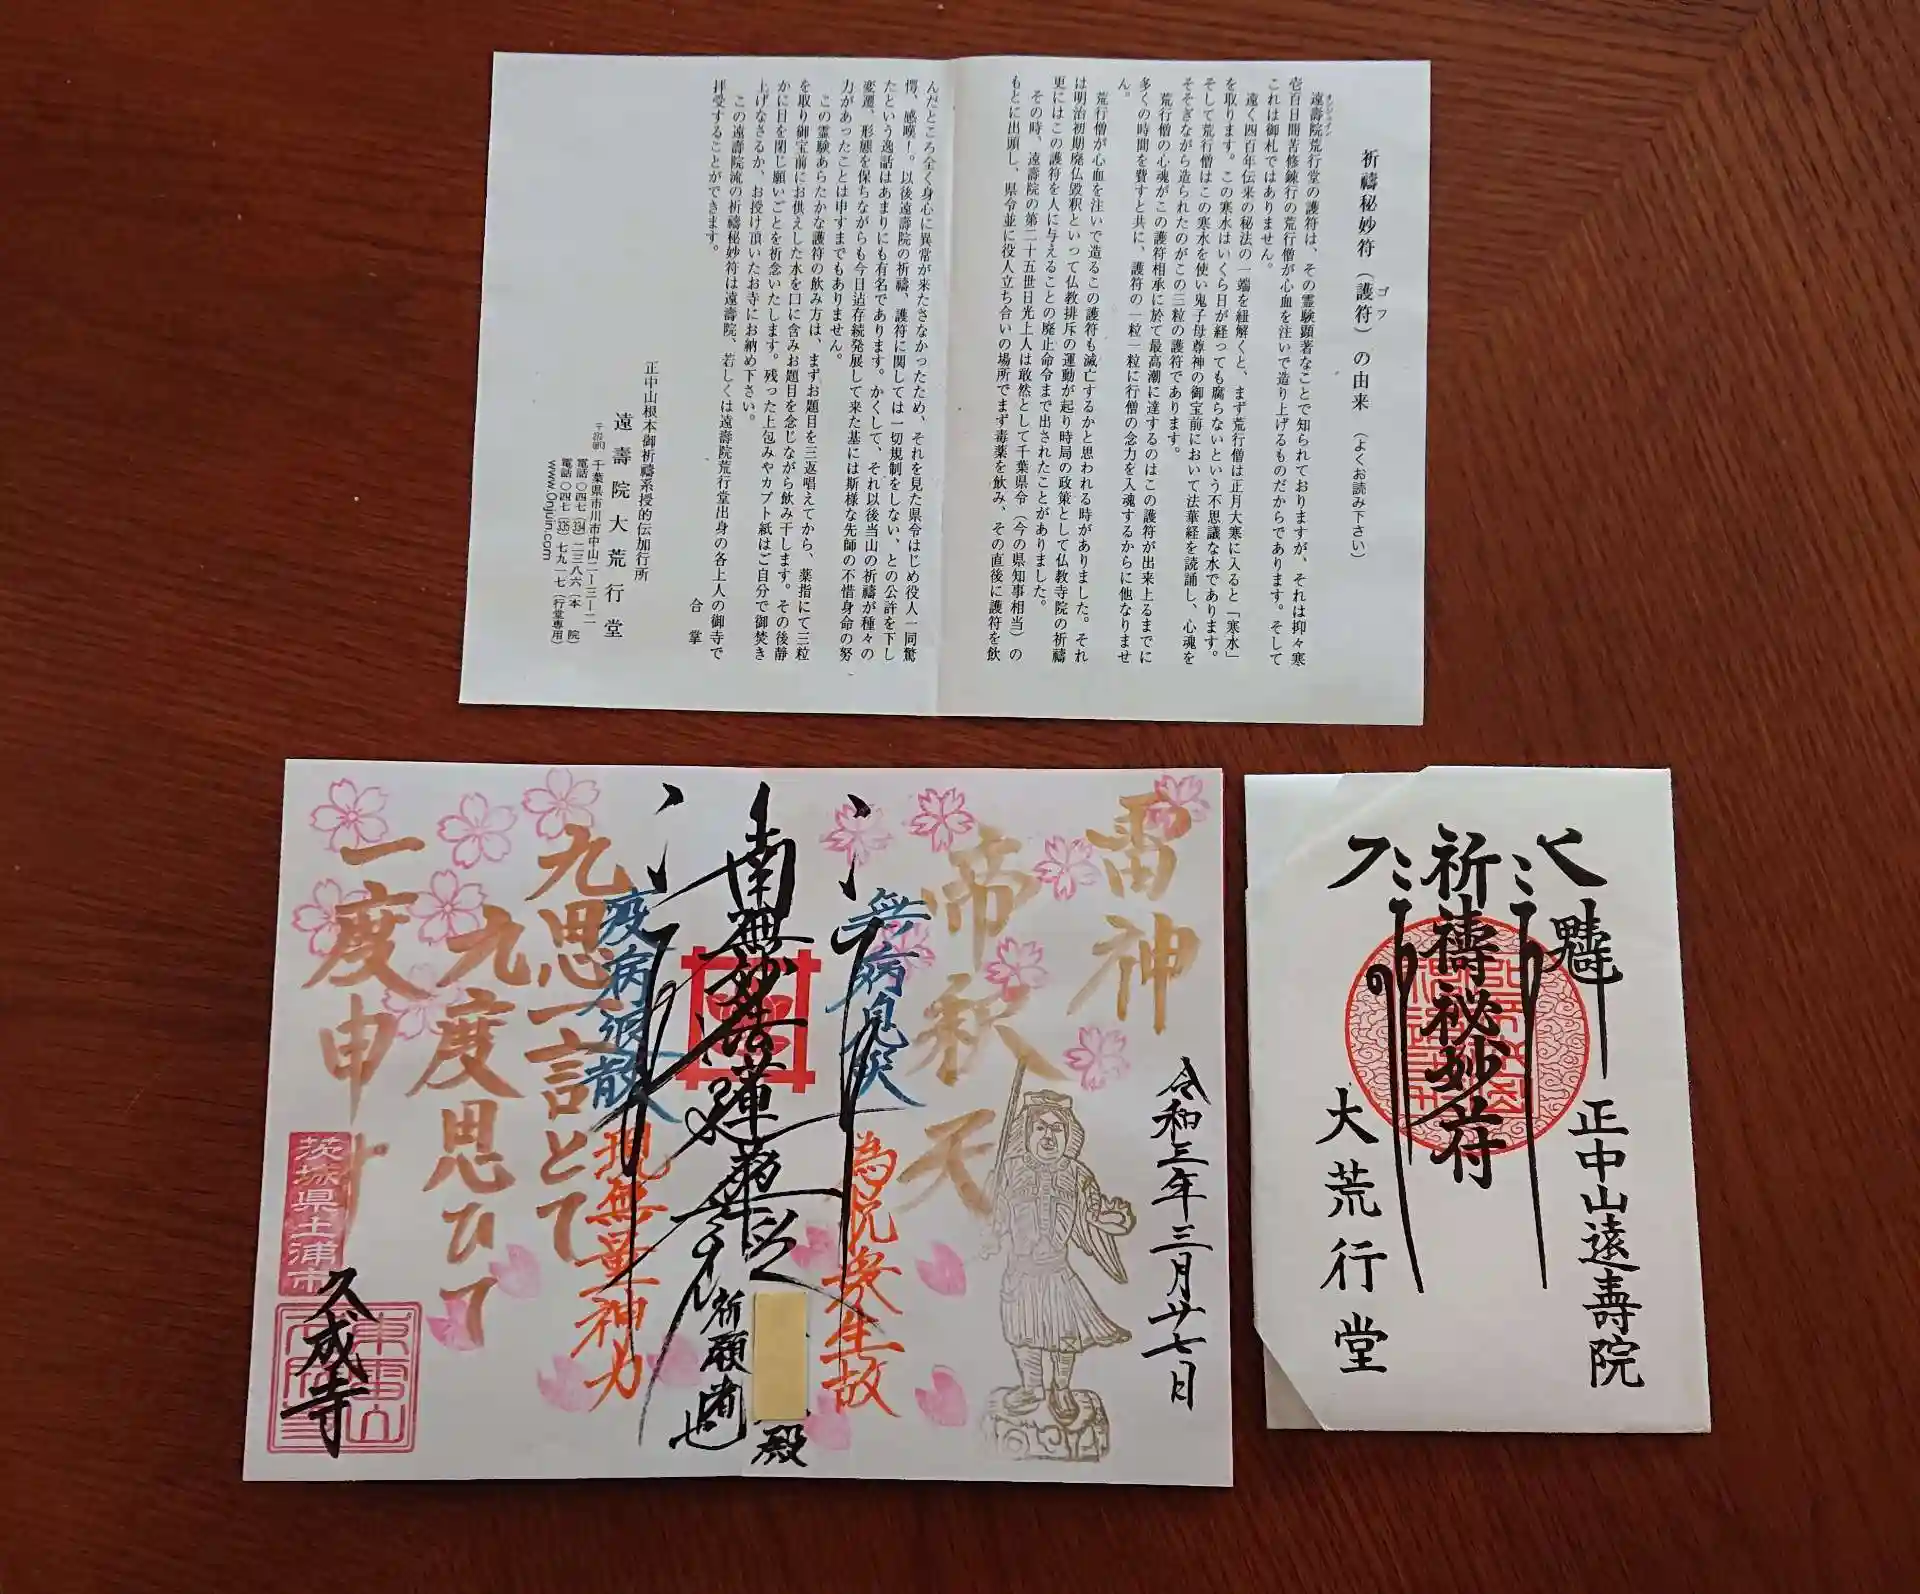 祈禱秘妙符（護符）の由来　（よくお読み下さい）
ゴフ
オンジュイン
遠壽院荒行堂の護符は、その霊験顕著なことで知られておりますが、それは抑々寒
壱百日間苦修錬行の荒行僧が心血を注いで造り上げるものだからであります。そして
これは御札ではありません。
遠く四百年伝来の秘法の一端を紐解くと、まず荒行僧は正月大寒に入ると「寒水」
を取ります。この寒水はいくら日が経っても腐らないという不思議な水であります。
そして荒行僧はこの寒水を使い鬼子母尊神の御宝前において法華経を読誦し、心魂を
そそぎながら造られたのがこの三粒の護符であります。
荒行僧の心魂がこの護符相承に於て最高潮に達するのはこの護符が出来上るまでに
多くの時間を費すと共に、護符の一粒一粒に行僧の念力を入魂するからに他なりませ
ん。
荒行僧が心血を注いで造るこの護符も滅亡するかと思われる時がありました。それ
は明治初期廃仏毀釈といって仏教排斥の運動が起り時局の政策として仏教寺院の祈禱
更にはこの護符を人に与えることの廃止命令まで出されたことがありました。
その時、遠壽院の第二十五世日光上人は敢然として千葉県令（今の県知事相当）の
もとに出頭し、県令並に役人立ち合いの場所でまず毒薬を飲み、その直後に護符を飲
んだところ全く身心に異常が来たさなかったため、それを見た県令はじめ役人一同驚
愕、感嘆！。以後遠壽院の祈禱、護符に関しては一切規制をしない、との公許を下し
たという逸話はあまりにも有名であります。かくして、それ以後当山の祈禱が種々の
変遷、形態を保ちながらも今日迠存続発展して来た基には斯様な先師の不惜身命の努
力があったことは申すまでもありません。
この霊験あらたかな護符の飲み方は、まずお題目を三返唱えてから、薬指にて三粒
を取り御宝前にお供えした水を口に含みお題目を念じながら飲み干します。その後静
かに目を閉じ願いごとを祈念いたします。残った上包みやカブト紙はご自分で御焚き
上げなさるか、お授け頂いたお寺にお納め下さい。
この遠壽院流の祈禱秘妙符は遠壽院、若しくは遠壽院荒行堂出身の各上人の御寺で
拝受することができます。
合掌
正中山根本御祈禱系授的伝加行所
遠壽院大荒行堂
千葉県市川市中山二ー三ー二
電話〇四七（334）二三八六（本　院）
電話〇四七（335）七九一七（行堂専用）
www.Onjuin.com
令和三年三月廿七日
雷神
帝釈天
無病息災
為悦衆生故
南無妙法蓮華経
祈願者也
殿
疫病退散
現無量神力
九思一言とて
九度思ひて
一度申す
茨城県土浦市
久成寺
正中山遠壽院
祈禱秘妙符
大荒行堂